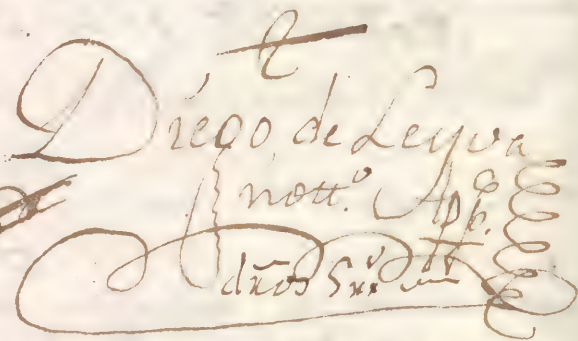 Diego de Leyva
nott.º App.